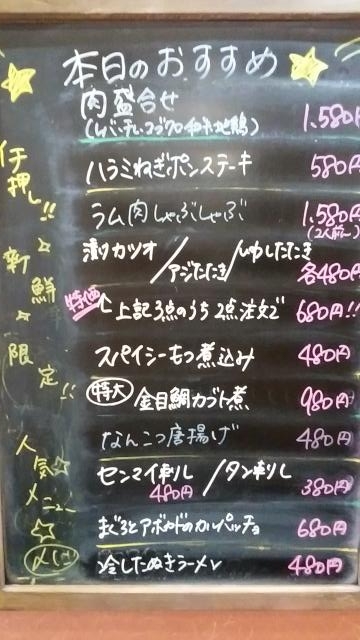 本日のおすすめ
肉盛合せ
1,580円
ハラミねぎポンステーキ 580円
ラム肉しゃぶしゃぶ 1,580円
(2人前〜)
漬けカツオ/アジたたき/いわしたたき 各480円
特価 上記3点のうち2点注文で 680円!!
スパイシーもつ煮込み 480円
特大 金目鯛カブト煮 980円
なんこつ唐揚げ 480円
センマイ刺し 480円/タン刺し 380円
まぐろとアボカドのカルパッチョ 680円
冷したぬきラーメン 480円
イチ押し!!
新鮮
限定!!
人気☆
メニュー
☆